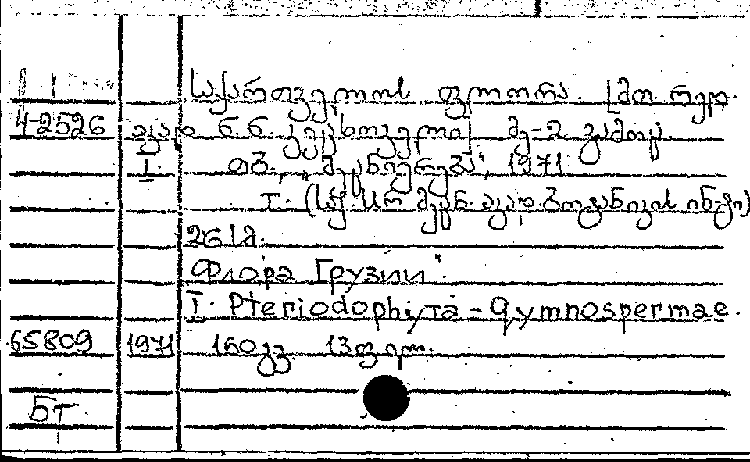 საქართველოს ფლორა. [მთ. რედ.
4-2526 აკად. ნ.ნ. კეცხოველი] მე-2 გამოც.
I თბ., „მეცნიერება", 1971
I. (საქ. სსრ მეცნ. აკად. ბოტანიკის ინ-ტი)
2612.
Флора Грузии.
I. Pteriodophyта - Gymnospermae.
65809 1971 160გვ 13ფ.ილ.
БТ